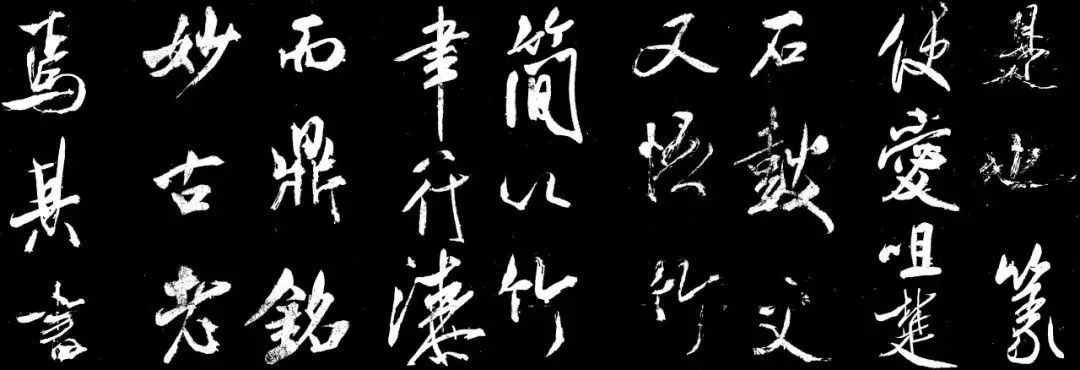 是也篆
便愛咀楚
石鼓文
又悟竹
簡以竹
聿行漆
而鼎銘
妙古老
焉其書